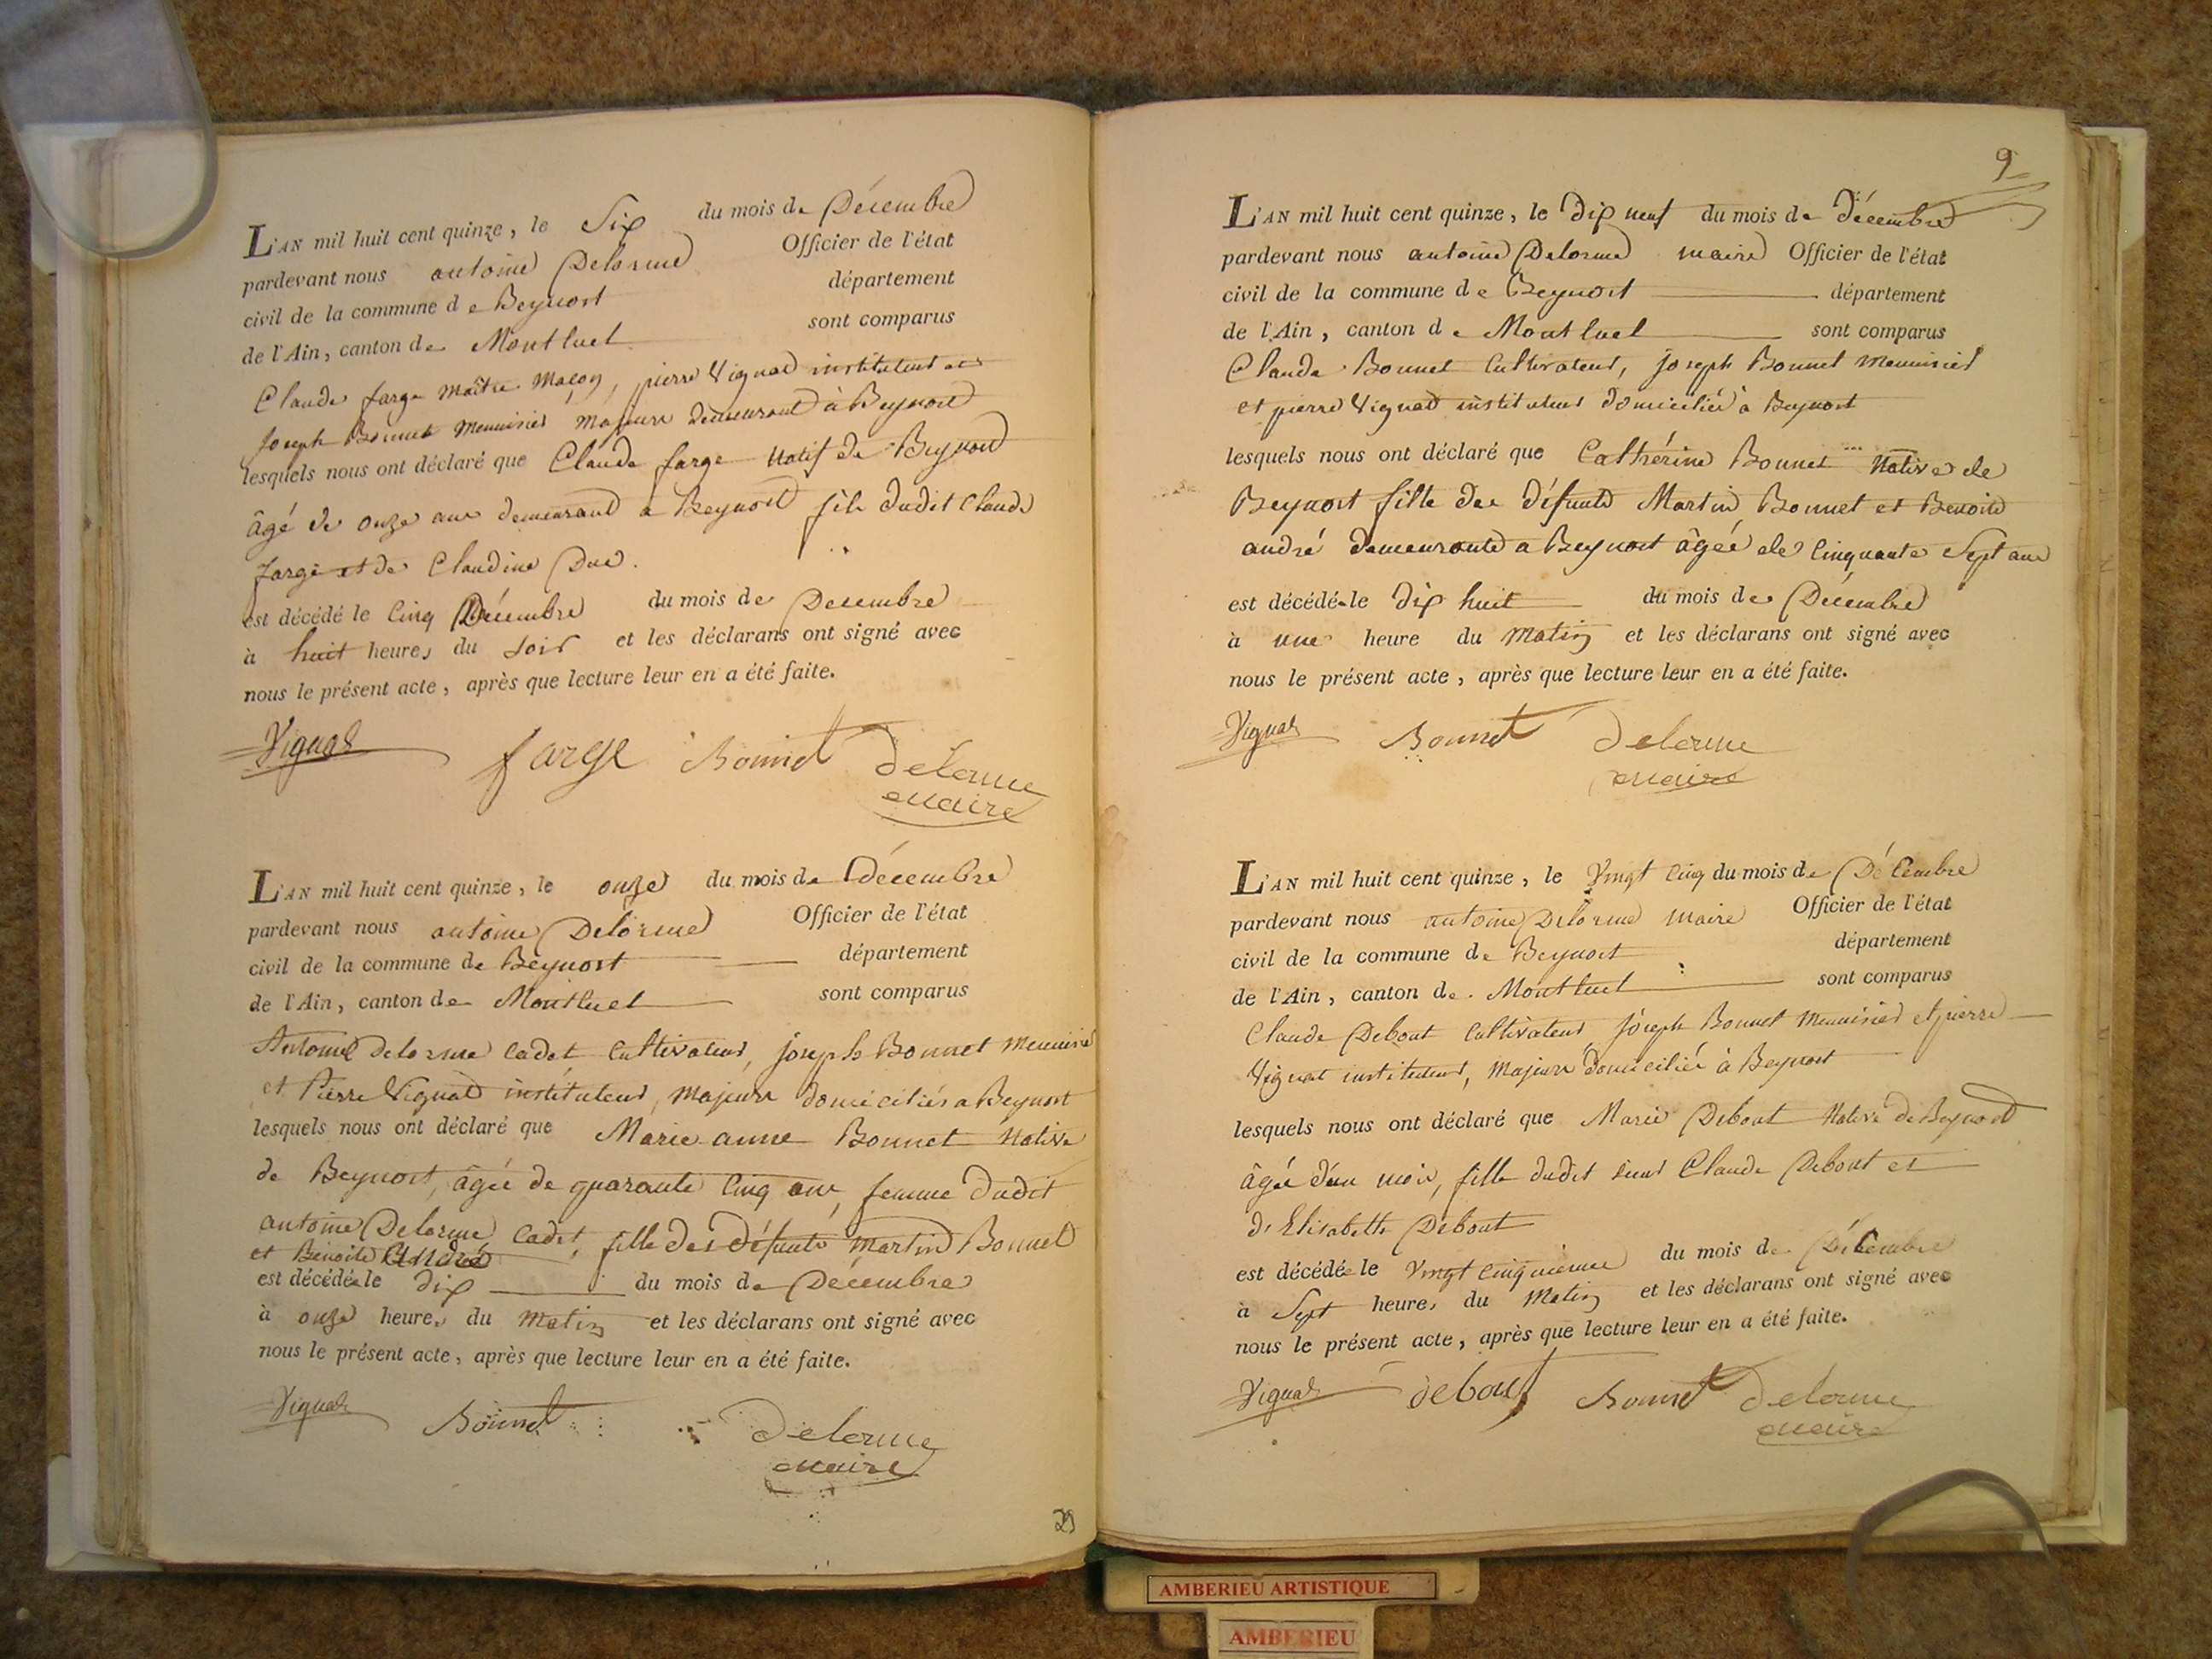 L'AN mil huit cent quinze, le Six du mois de Décembre
pardevant nous antoine Delorme Officier de l'état
civil de la commune de Beynost département
de l'Ain, canton de Montluel sont comparus
Claude farge maître maçon, pierre Vignat instituteur et
Joseph Bonnet menuisier majeurs demeurant à Beynost
lesquels nous ont déclaré que Claude farge natif de Beynost
âgé de onze ans demeurant a Beynost fils dudit Claude
farge et de Claudine Duc.
est décédé le Cinq Décembre du mois de Decembre
à huit heures du soir et les déclarans ont signé avec
nous le présent acte, après que lecture leur en a été faite.
Vignat farge Bonnet delorme
maire
L'AN mil huit cent quinze, le onze du mois de décembre
pardevant nous antoine Delorme Officier de l'état
civil de la commune de Beynost département
de l'Ain, canton de Montluel sont comparus
Antoine delorme cadet cultivateur, joseph Bonnet menuisier
et Pierre Vignat instituteur, majeurs domiciliés a Beynost
lesquels nous ont déclaré que Marie anne Bonnet native
de Beynost, âgée de quarante cinq ans, femme dudit
antoine Delorme cadet, fille des défunts martin Bonnet
et Benoite André
est décédée le dix du mois de Décembre
à onze heures du matin et les déclarans ont signé avec
nous le présent acte, après que lecture leur en a été faite.
Vignat Bonnet delorme
maire
29
9
L'AN mil huit cent quinze, le dix neuf du mois de décembre
pardevant nous antoine Delorme maire Officier de l'état
civil de la commune de Beynost département
de l'Ain, canton de Montluel sont comparus
Claude Bonnet cultivateur, joseph Bonnet menuisier
et pierre Vignat instituteur domiciliés à Beynost
lesquels nous ont déclaré que Cathérine Bonnet native de
Beynost fille des défunts Martin Bonnet et Benoite
andré demeurante a Beynost âgée de cinquante Sept ans
est décédée le dix huit du mois de Décembre
à une heure du matin et les déclarans ont signé avec
nous le présent acte, après que lecture leur en a été faite.
Vignat Bonnet delorme
maire
L'AN mil huit cent quinze, le Vingt cinq du mois de Décembre
pardevant nous antoine Delorme maire Officier de l'état
civil de la commune de Beynost département
de l'Ain, canton de Montluel sont comparus
Claude Debout cultivateur joseph Bonnet menuisier et pierre
Vignat instituteur, majeurs domiciliés à Beynost
lesquels nous ont déclaré que Marie Debout native de Beynost
âgée d'un mois, fille dudit sieur Claude Debout et
d'Elisabeth Debout
est décédée le vingt cinquième du mois de Décembre
à Sept heures du matin et les déclarans ont signé avec
nous le présent acte, après que lecture leur en a été faite.
Vignat debout Bonnet delorme
maire
AMBERIEU ARTISTIQUE
AMBERIEU